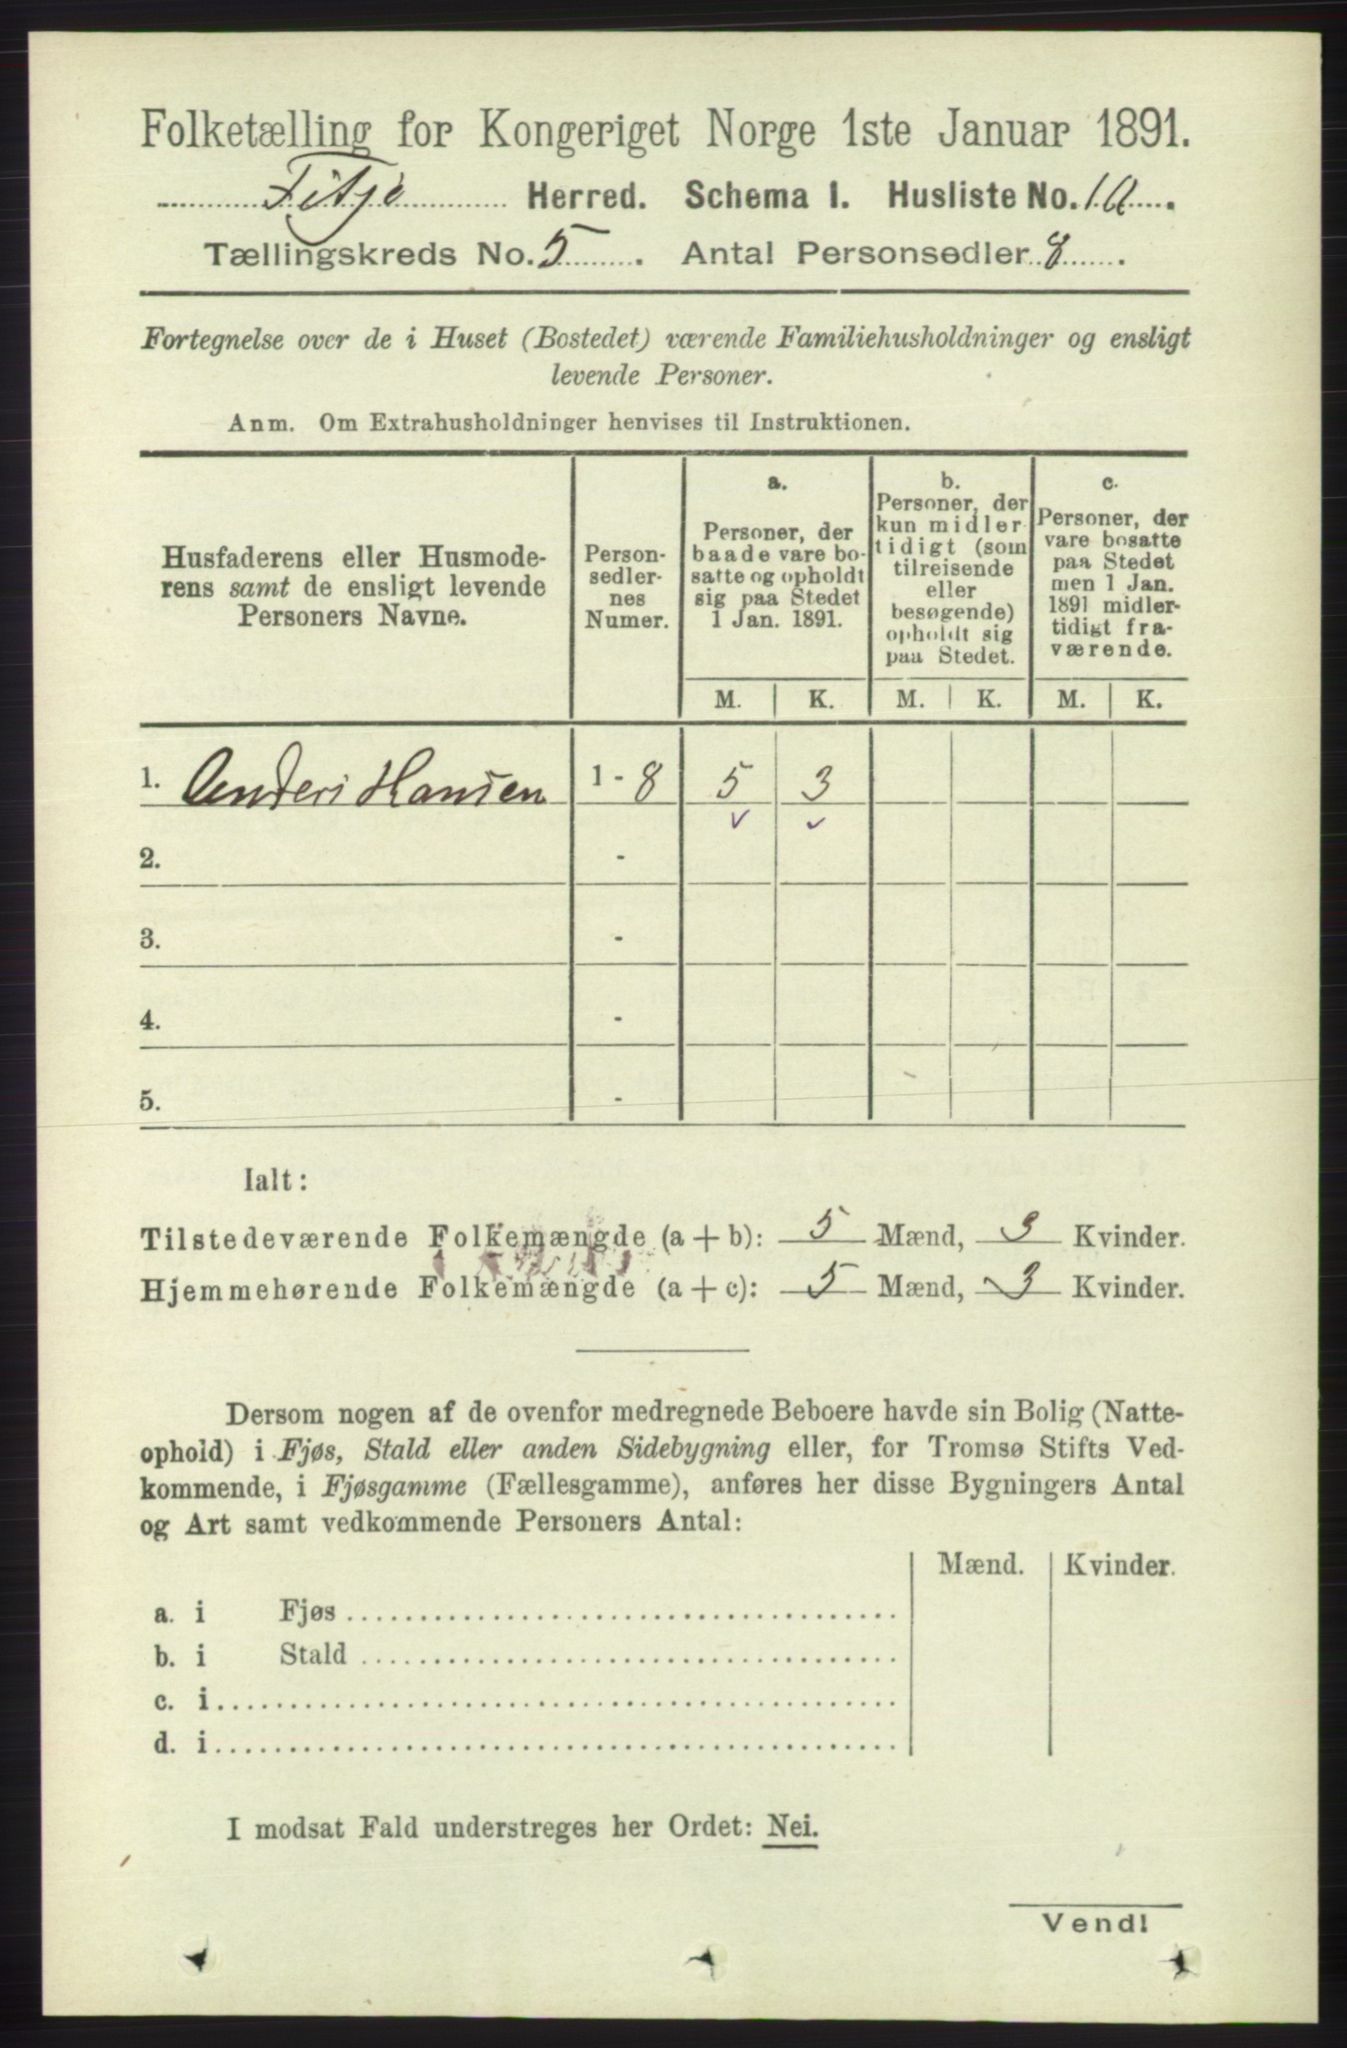 Folketælling for Kongeriget Norge 1ste Januar 1891.
Fitje Herred. Schema I. Husliste No. 1a.
Tællingskreds No. 5. Antal Personsedler 8.
Fortegnelse over de i Huset (Bostedet) værende Familiehusholdninger og ensligt
levende Personer.
Anm. Om Extrahusholdninger henvises til Instruktionen.
Husfaderens eller Husmode-
rens samt de ensligt levende
Personers Navne.
Person-
sedler-
nes
Numer.
a.
Personer, der
baade vare bo-
satte og opholdt
sig paa Stedet
1 Jan. 1891.
b.
Personer, der
kun midler-
tidigt (som
tilreisende
eller
besøgende)
opholdt sig
paa Stedet.
c.
Personer, der
vare bosatte
paa Stedet
men 1 Jan.
1891 midler-
tidigt fra-
værende.
M. K. M. K. M. K.
1. Anders Hansen 1 - 8 5 3
2. -
3. -
4. -
5. -
Ialt:
Tilstedeværende Folkemængde (a + b): 5 Mænd, 3 Kvinder.
Hjemmehørende Folkemængde (a + c): 5 Mænd, 3 Kvinder.
Dersom nogen af de ovenfor medregnede Beboere havde sin Bolig (Natte-
ophold) i Fjøs, Stald eller anden Sidebygning eller, for Tromsø Stifts Ved-
kommende, i Fjøsgamme (Fællesgamme), anføres her disse Bygningers Antal
og Art samt vedkommende Personers Antal:
Mænd. Kvinder.
a. i Fjøs
b. i Stald
c. i
d. i
I modsat Fald understreges her Ordet: Nei.
Vend!